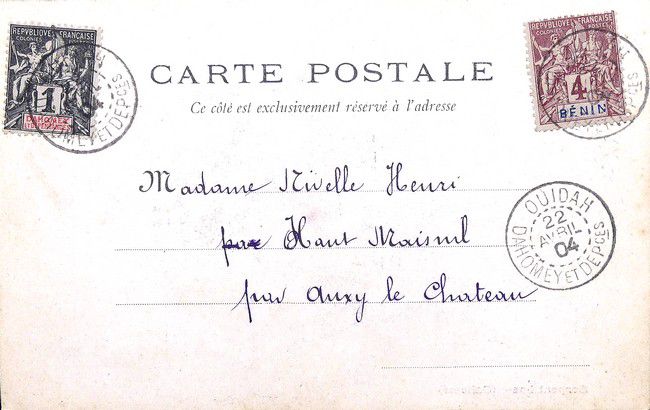 REPVBLIQVE FRANÇAISE
COLONIES POSTES
1
DAHOMEY
REPVBLIQVE FRANÇAISE
COLONIES
4
BÉNIN
CARTE POSTALE
Ce côté est exclusivement réservé à l'adresse
Madame Nivelle Henri
par Haut Maisnil
par Auxy le Chateau
OUIDAH
22
AVRIL
04
DAHOMEY ET DÉPCES